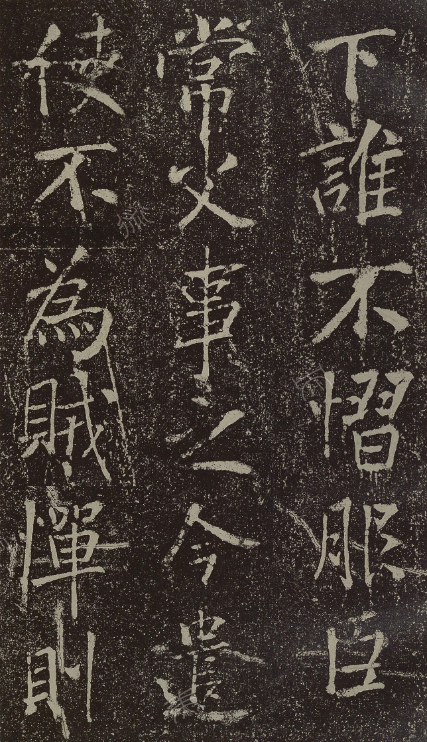 下誰不慴服臣
常父事之今遣
使不為賊憚則